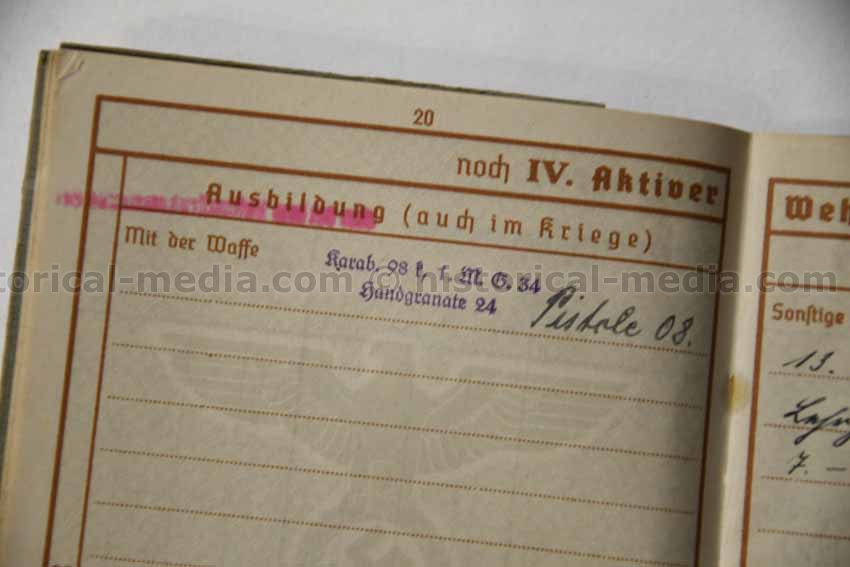 20
noch IV. Aktiver
Ausbildung (auch im Kriege)
Mit der Waffe
Karab. 98 k, l. M. G. 34
Handgranate 24
Pistole 08.
historical-media.com © historical-media.com
Weh
Sonstige
13.
Lehr
7. –